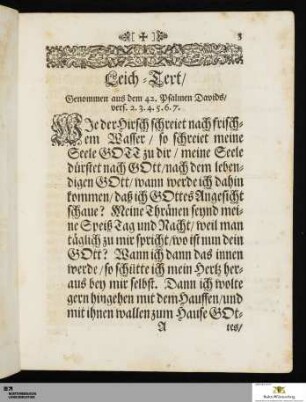 [ ✠ ] 3
Leich-Text/
Genommen aus dem 42. Psalmen Davids/
vers. 2. 3. 4. 5. 6. 7.
WIe der Hirsch schreiet nach frisch-
em Wasser / so schreiet meine
Seele GOTT zu dir / meine Seele
dürstet nach GOtt / nach dem leben-
digen GOtt / wann werde ich dahin
kommen / daß ich GOttes Angesicht
schaue? Meine Thränen seynd mei-
ne Speiß Tag und Nacht / weil man
täglich zu mir spricht / wo ist nun dein
GOtt? Wann ich dann das innen
werde / so schütte ich mein Hertz her-
aus bey mir selbst. Dann ich wolte
gern hingehen mit dem Hauffen / und
mit ihnen wallen zum Hause GOt-
A tes/
Baden-Württemberg